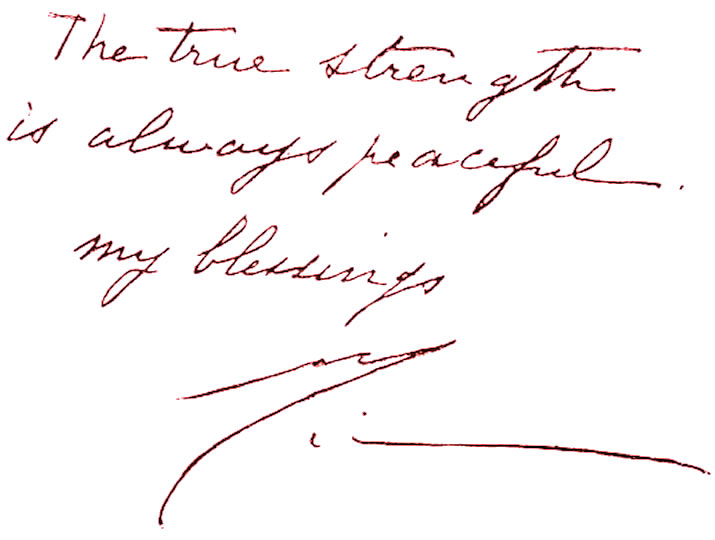 The true strength
is always peaceful.
my blessings